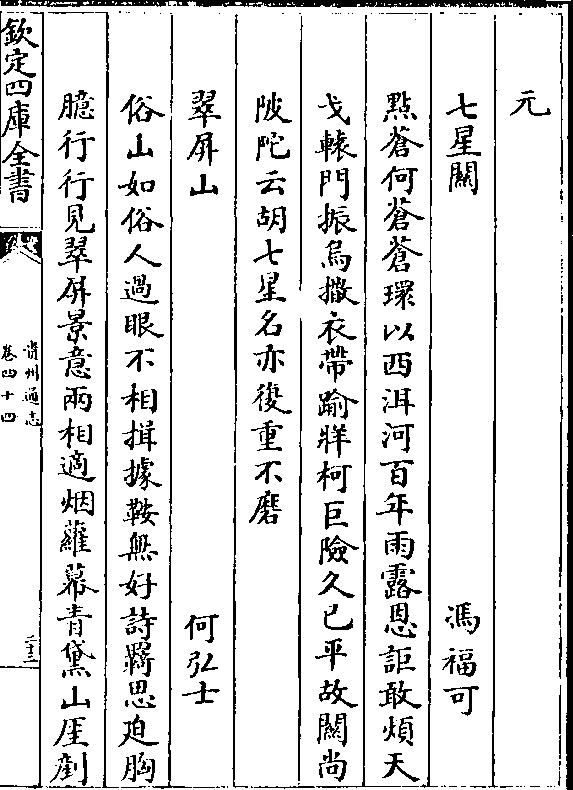 元
七星關　馮福可
點蒼何蒼蒼環以西洱河百年雨露恩詎敢煩天
戈轅門振烏撒衣帶踰牂柯巨險久已平故關尚
陂陀云胡七星名亦復重不磨
翠屏山　何弘士
俗山如俗人過眼不相揖據鞍無好詩羇思迫胸
臆行行見翠屏景意兩相適烟蘿幕青黛山厓劃
欽定四庫全書
貴州通志
卷四十四
二十三